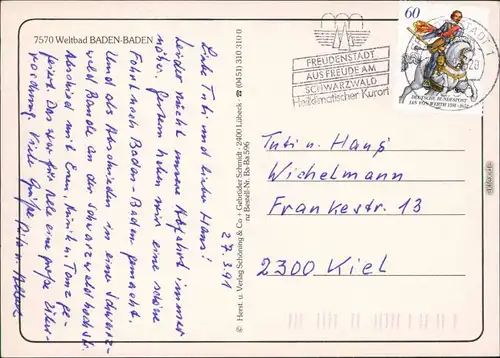 7570 Weltbad BADEN-BADEN
Liebe Tuti und lieber Hans!
Leider rückt unsere Abfahrt immer
näher. Gestern haben wir eine schöne
Fahrt nach Baden-Baden gemacht.
Und als Abschied in eine Schwarz-
wald an der Schwarzwaldhochstr.
Abschied mit Musik u. Tanz ge-
feiert. Das war für alle eine große Über-
raschung. Viele Grüße
27.3.91
© Herst. u. Verlag Schöning & Co + Gebrüder Schmidt · 2400 Lübeck · ☎ (0451) 31 03 10 0
nz Bestell-Nr. Ba-Ba 596
FREUDENSTADT
AUS FREUDE AM
SCHWARZWALD
Heilklimatischer Kurort
60
DEUTSCHE BUNDESPOST
JAN VON WERTH 1591-1652
Tuti u. Hans
Wichelmann
Frankestr. 13
2300 Kiel